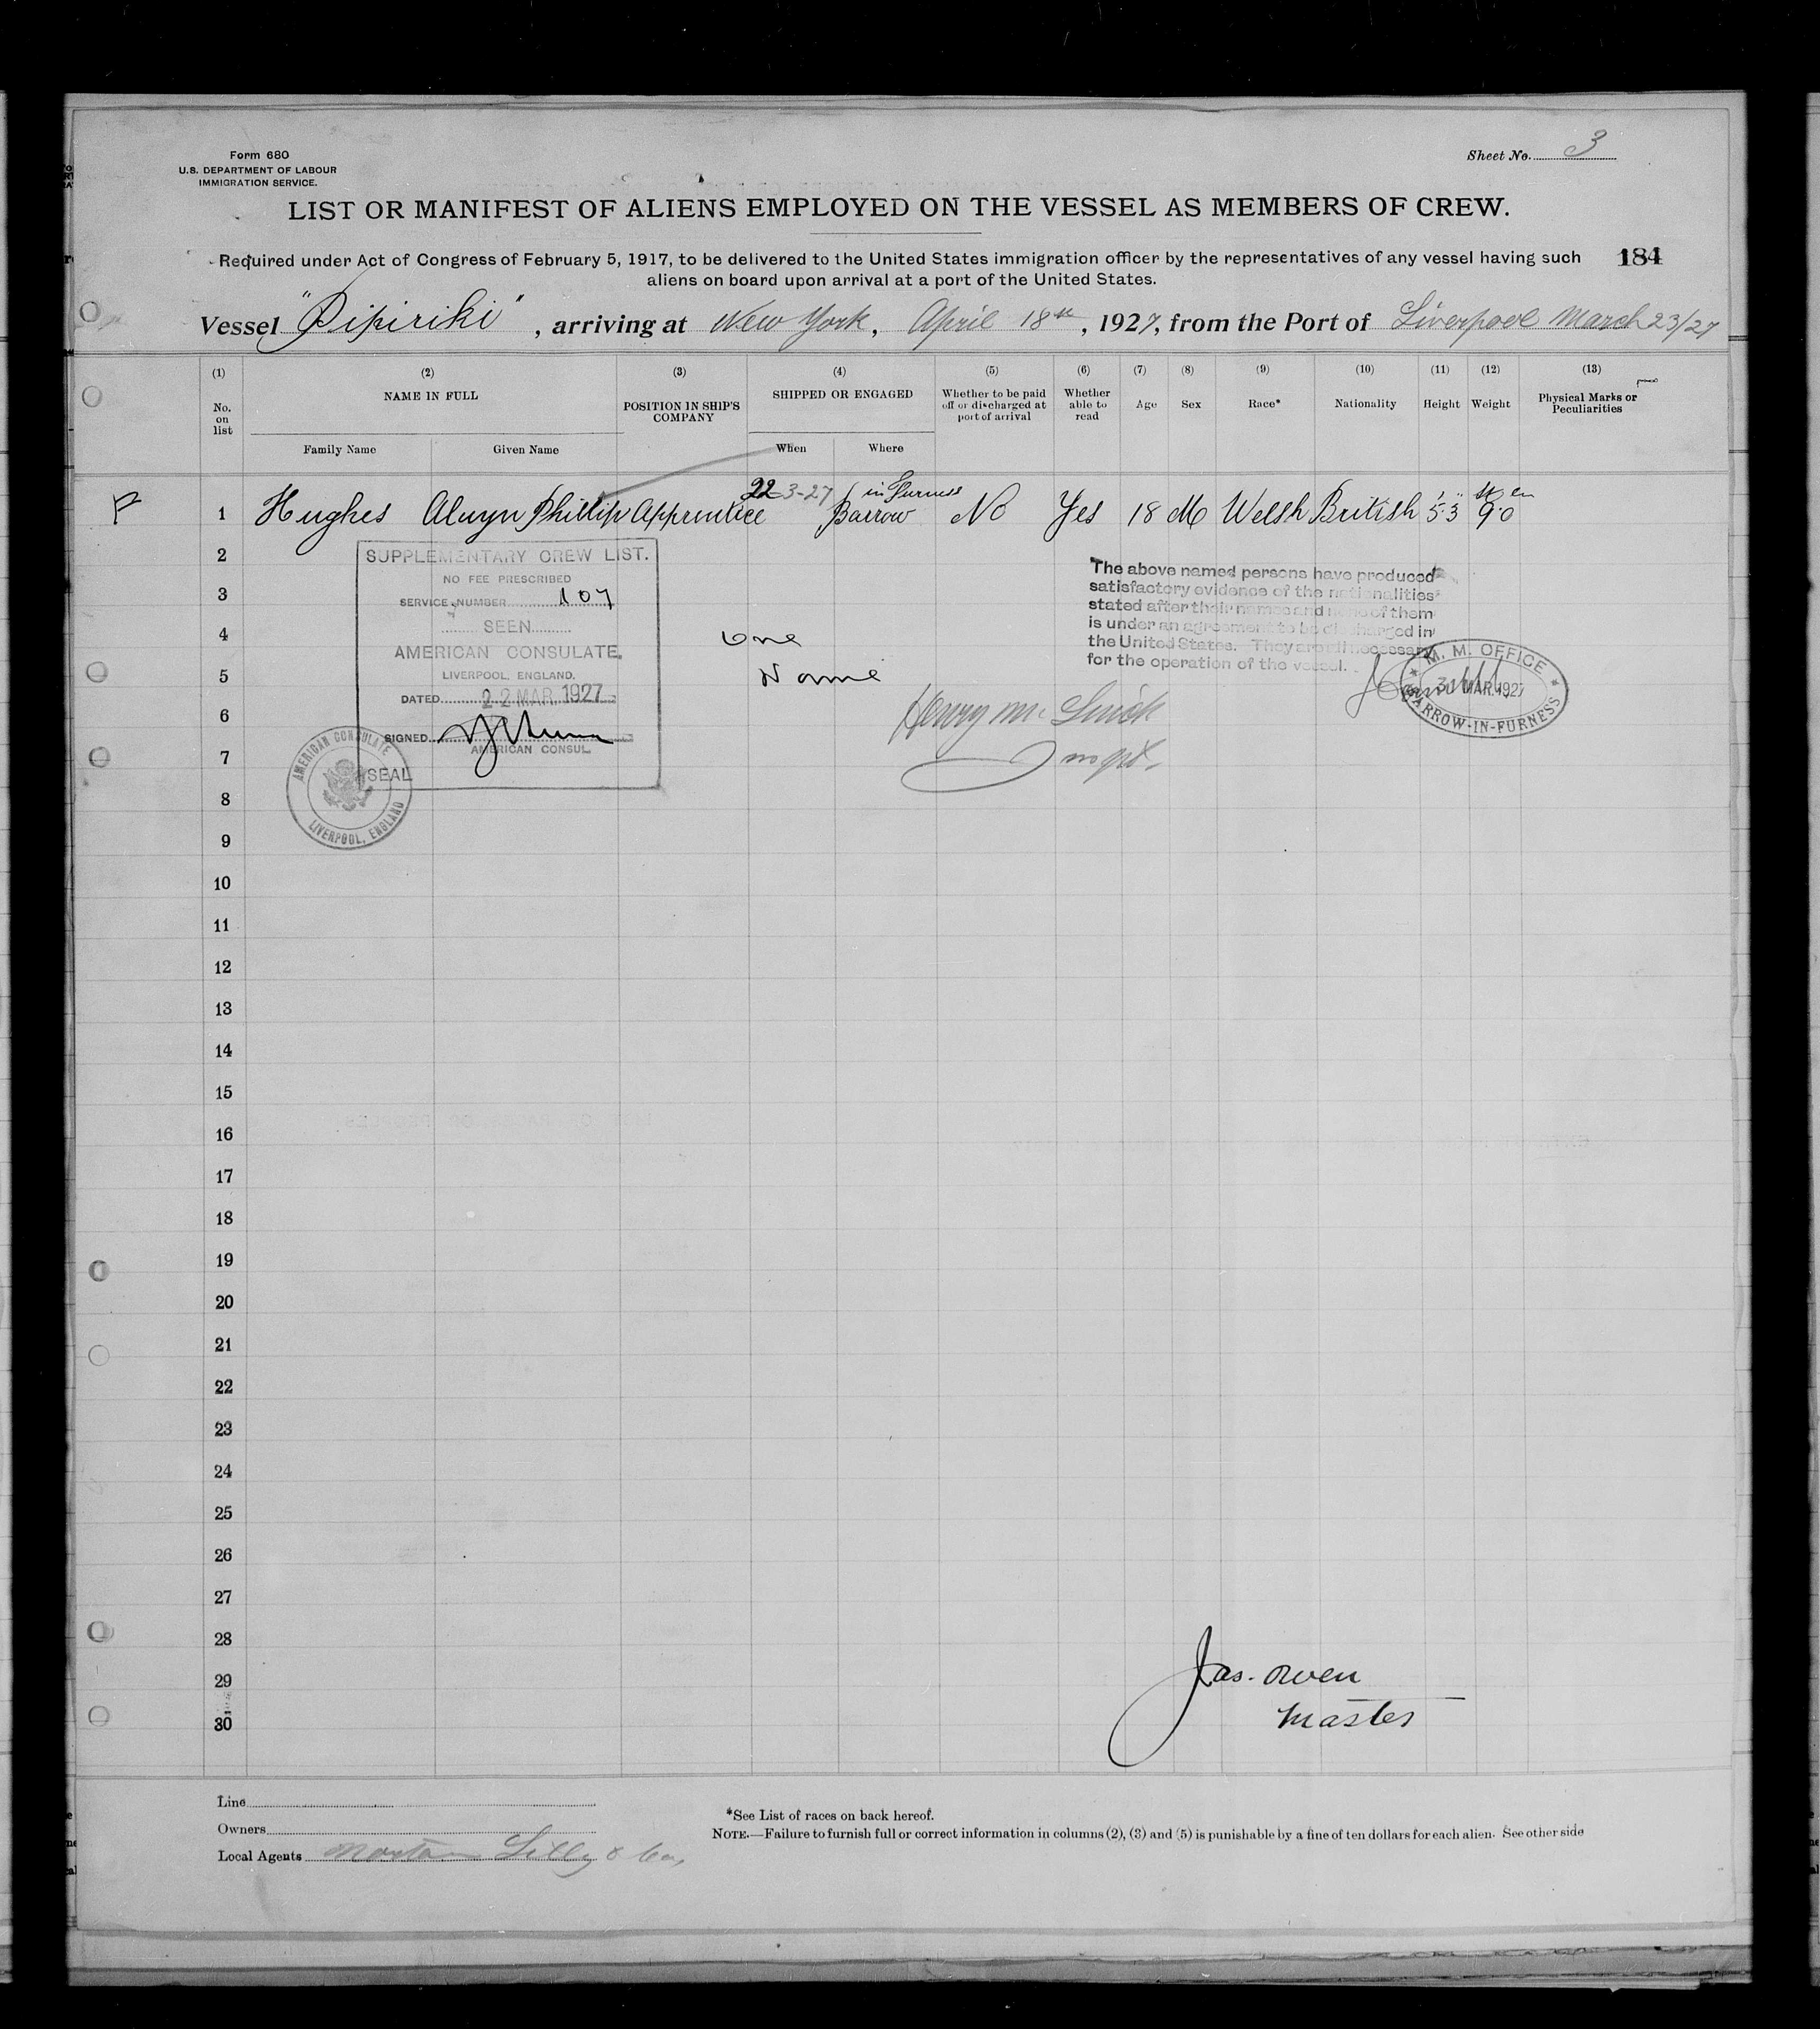 Form 680
U.S. DEPARTMENT OF LABOUR
IMMIGRATION SERVICE.
Sheet No. 3
LIST OR MANIFEST OF ALIENS EMPLOYED ON THE VESSEL AS MEMBERS OF CREW.
Required under Act of Congress of February 5, 1917, to be delivered to the United States immigration officer by the representatives of any vessel having such
aliens on board upon arrival at a port of the United States.
184
Vessel "Pipiriki", arriving at New York, April 18th, 1927, from the Port of Liverpool March 23/27
(1) (2) (3) (4) (5) (6) (7) (8) (9) (10) (11) (12) (13)
No. on list
NAME IN FULL
Family Name
Given Name
POSITION IN SHIP'S COMPANY
SHIPPED OR ENGAGED
When
Where
Whether to be paid off or discharged at port of arrival
Whether able to read
Age
Sex
Race*
Nationality
Height
Weight
Physical Marks or Peculiarities
P 1 Hughes Alwyn Phillip Apprentice 22-3-27 Barrow in Furness No Yes 18 M Welsh British 5'3" 9.0
2
3
4
5
6
7
8
9
10
11
12
13
14
15
16
17
18
19
20
21
22
23
24
25
26
27
28
29
30
SUPPLEMENTARY CREW LIST.
NO FEE PRESCRIBED
SERVICE NUMBER 107
SEEN
AMERICAN CONSULATE,
LIVERPOOL, ENGLAND.
DATED 22 MAR 1927
SIGNED
AMERICAN CONSUL
SEAL
AMERICAN CONSULATE
LIVERPOOL, ENGLAND
one
Name
Henry
The above named persons have produced
satisfactory evidence of the nationalities
stated after their names and none of them
is under an agreement to be discharged in
the United States. They are all necessary
for the operation of the vessel.
M. M. OFFICE
MAR. 1927
BARROW-IN-FURNESS
Jas. Owen
Master
Line
Owners
Local Agents Norton Lilly & Co.,
*See List of races on back hereof.
NOTE.—Failure to furnish full or correct information in columns (2), (3) and (5) is punishable by a fine of ten dollars for each alien. See other side